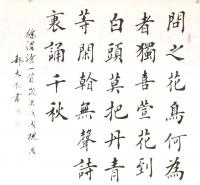 問之花鳥何為
者獨喜萱花到
白頭莫把丹青
等閑翰無聲詩
裏誦千秋
徐渭詩一首
書